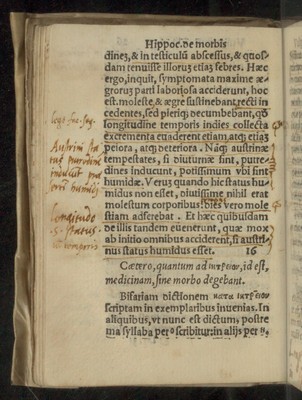 Hippoc. de morbis
dinez, & in testiculū abscessus, & quos-
dam tenuisse illoruȝ etiaȝ febres. Hæc
ergo, inquit, symptomata maxime æ-
groruȝ parti laboriosa acciderunt, hoc
est, moleste, & ægre sustinebant recti in
cedentes, sed pleriq; decumbebant, qd̄
longitudine temporis indies collecta
excrementa euaderent etiam, atq; etiaȝ
peiora, atq; deteriora. Nāq; austrinæ
tempestates, si diuturnæ sint, putre-
dines inducunt, potissimum vbi sint
humidæ. Verus quando hic status hu-
midus non esset, nulissime nihil erat
molestum corporibus: dies vero mole
stiam adferebat. Et hæc quibusdam
de illis tandem euenerunt, quæ mox
ab initio omnibus acciderent, si austri-
nus status humidus esset. 16
Cætero, quantum ad ιητρειον, id est,
medicinam, sine morbo degebant.
Bifariam dictionem κατα ιατρειον
scriptam in exemplaribus inuenias. In
aliquibus, vt nunc est dictum, postre
ma syllaba per o scribitur: in alijs per η.
Austrini sta
tus putredinē
inducūt
humidi
Longitudo
temporis